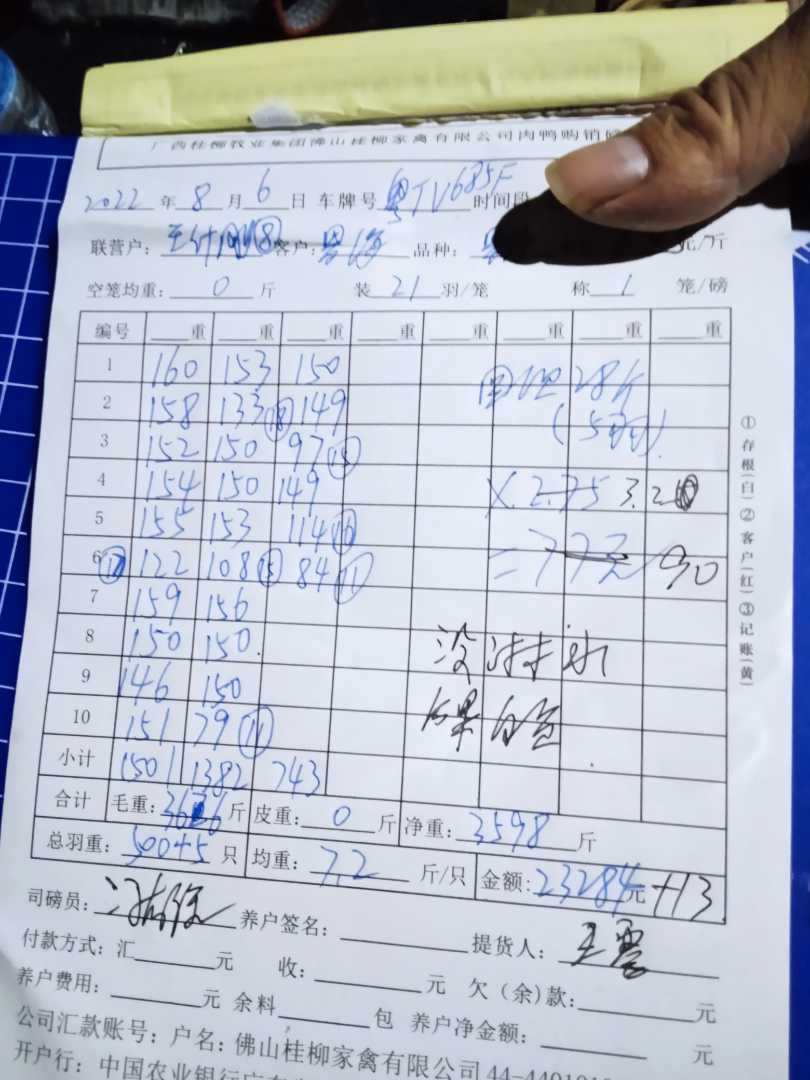 广西桂柳牧业集团佛山桂柳家禽有限公司肉鸭购销磅
2022 年 8 月 6 日 车牌号 粤TV685F 时间段
联营户: ⑧ 客户: 品种: 元/斤
空笼均重: 0 斤 装 21 羽/笼 称 1 笼/磅
编号 重 重 重 重 重 重 重 重
1 160 153 150
2 158 133 ⑱ 149
3 152 150 97
4 154 150 149
5 155 153 114 ⑯
6 122 108 ⑮ 84 ⑪
7 159 156
8 150 150
9 146 150
10 151 79 ⑪
小计 1501 1382 743
28斤
(5羽)
×2.75 3.2
=77元 90
没淋水
后果自负
合计 毛重: 3626 斤 皮重: 0 斤 净重: 3598 斤
总羽重: 500+5 只 均重: 7.2 斤/只 金额: 23284 元 +13
司磅员: 养户签名: 提货人: 王
付款方式: 汇 元 收: 元 欠(余)款: 元
养户费用: 元 余料 包 养户净金额: 元
公司汇款账号: 户名: 佛山桂柳家禽有限公司 44-4401
开户行: 中国农业银行
①存根(白)②客户(红)③记账(黄)